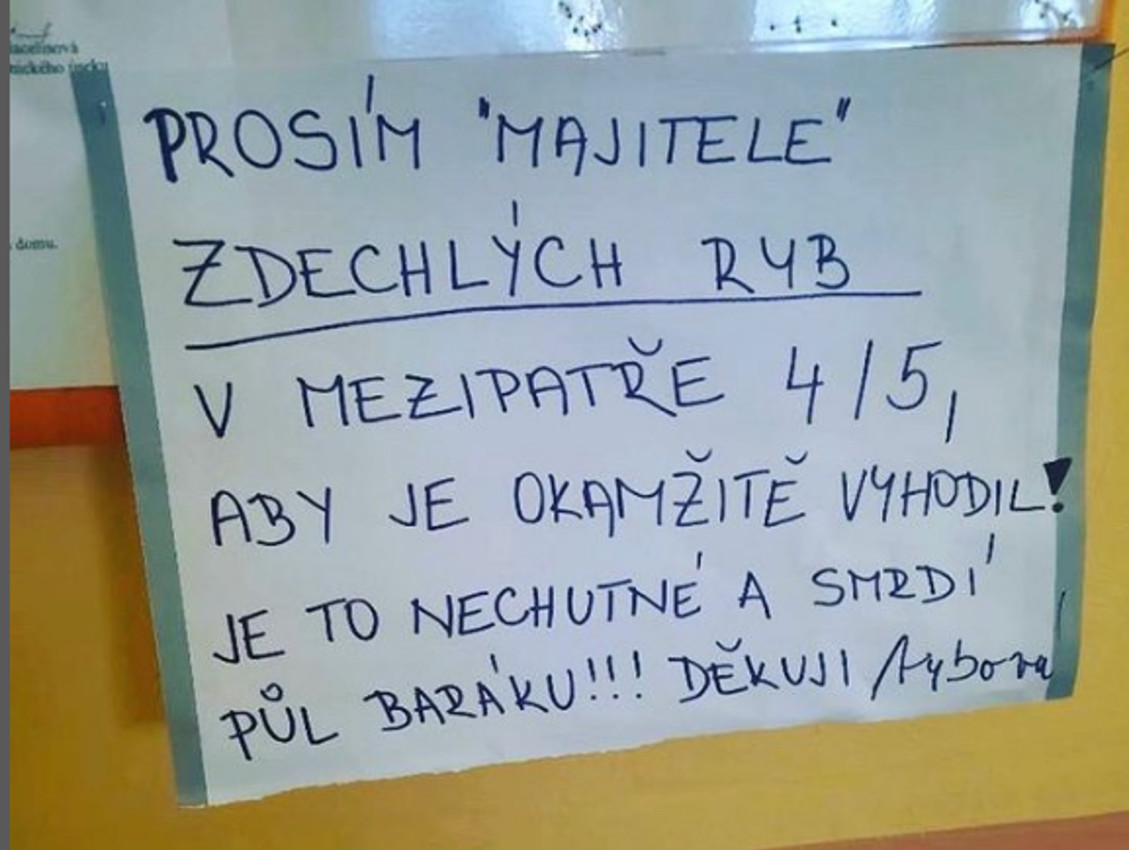 nického úseku
domu.
PROSÍM "MAJITELE"
ZDECHLÝCH RYB
V MEZIPATŘE 4/5,
ABY JE OKAMŽITĚ VYHODIL!
JE TO NECHUTNÉ A SMRDÍ
PŮL BARÁKU!!! DĚKUJI /Rybová